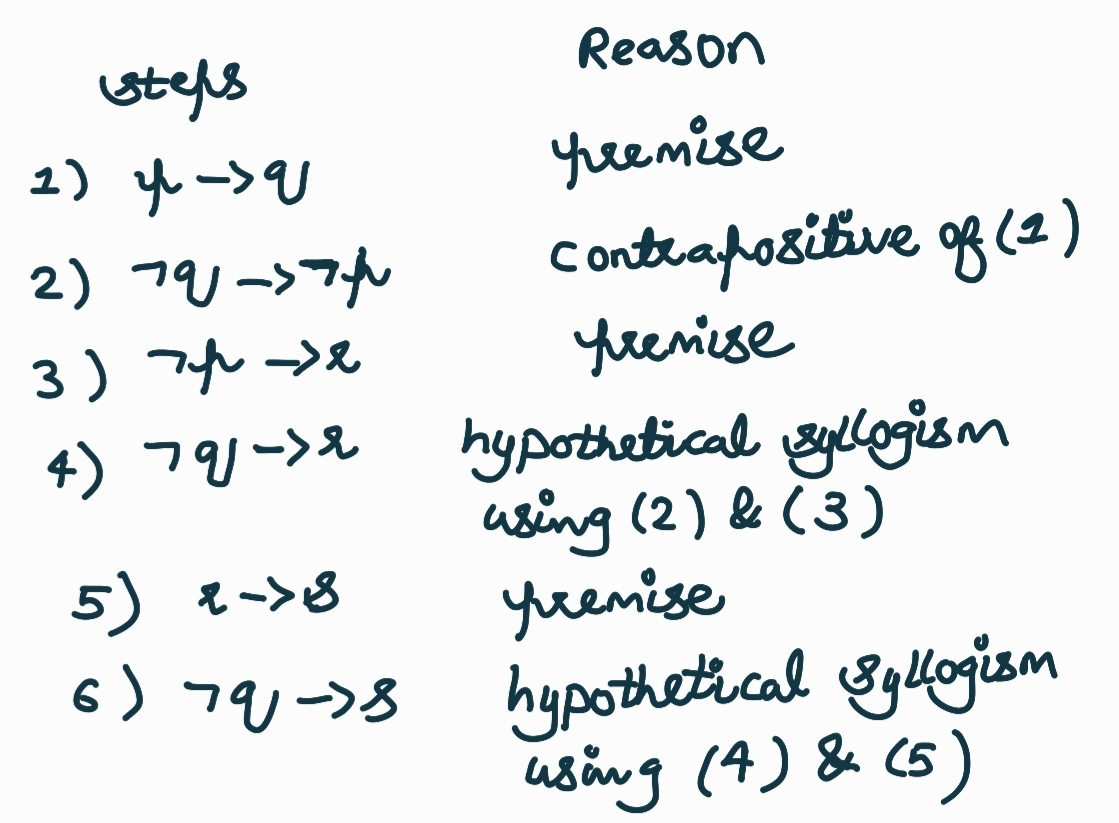 steps Reason
1) p → q premise
2) ¬q → ¬p contrapositive of (1)
3) ¬p → r premise
4) ¬q → r hypothetical syllogism
using (2) & (3)
5) r → s premise
6) ¬q → s hypothetical syllogism
using (4) & (5)